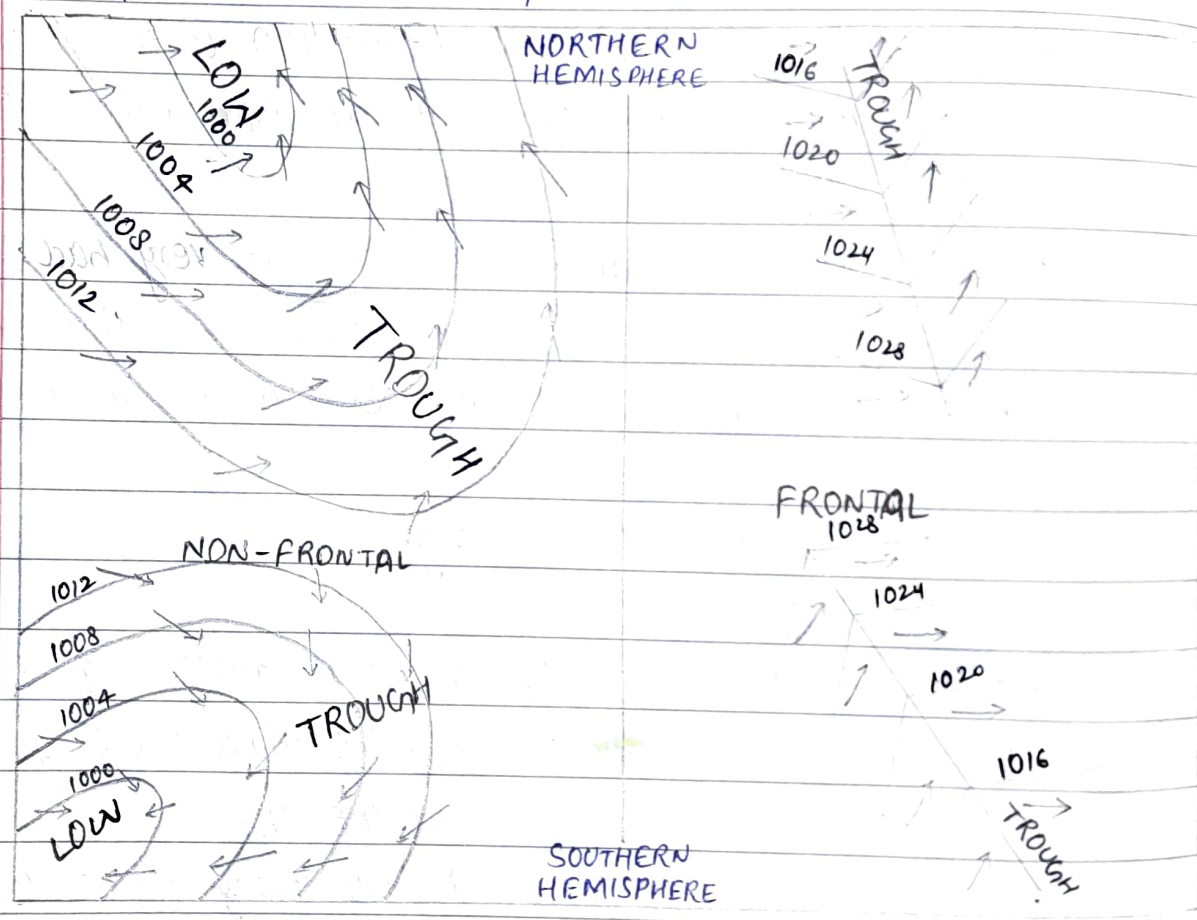 NORTHERN
HEMISPHERE
LOW
1000
1004
1008
1012
TROUGH
1016
TROUGH
1020
1024
1028
NON-FRONTAL
1012
1008
1004
1000
LOW
TROUGH
FRONTAL
1028
1024
1020
1016
TROUGH
SOUTHERN
HEMISPHERE